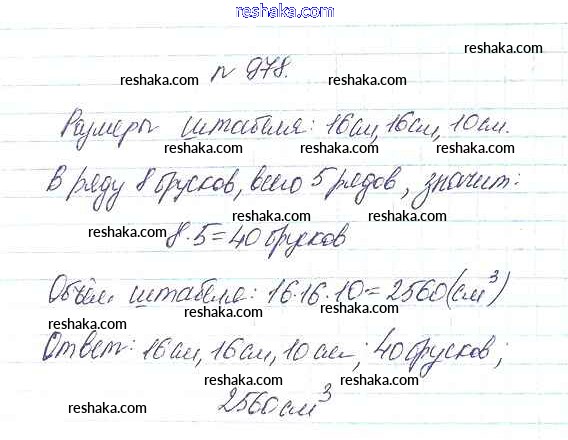 www.reshaka.com
reshaka.com
n 978.
reshaka.com reshaka.com
Размеры штабеля: 16см, 16см, 10см.
reshaka.com reshaka.com
В ряду 8 брусков, всего 5 рядов, значит:
reshaka.com reshaka.com
8·5=40 брусков
reshaka.com
Объём штабеля: 16·16·10=2560(см³)
reshaka.com reshaka.com
Ответ: 16см, 16см, 10см; 40 брусков;
reshaka.com reshaka.com
2560см³
reshaka.com reshaka.com